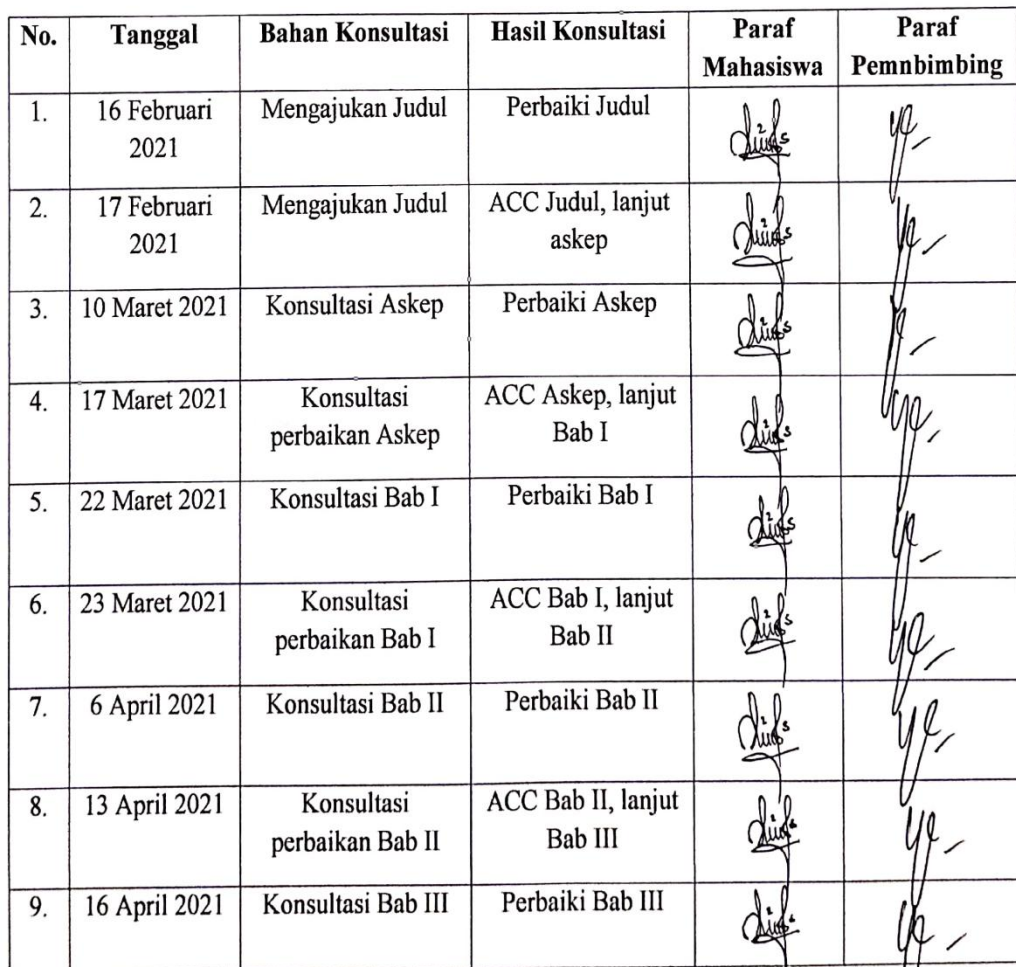 No. Tanggal Bahan Konsultasi Hasil Konsultasi Paraf Mahasiswa Paraf Pemnbimbing
1. 16 Februari 2021 Mengajukan Judul Perbaiki Judul
2. 17 Februari 2021 Mengajukan Judul ACC Judul, lanjut askep
3. 10 Maret 2021 Konsultasi Askep Perbaiki Askep
4. 17 Maret 2021 Konsultasi perbaikan Askep ACC Askep, lanjut Bab I
5. 22 Maret 2021 Konsultasi Bab I Perbaiki Bab I
6. 23 Maret 2021 Konsultasi perbaikan Bab I ACC Bab I, lanjut Bab II
7. 6 April 2021 Konsultasi Bab II Perbaiki Bab II
8. 13 April 2021 Konsultasi perbaikan Bab II ACC Bab II, lanjut Bab III
9. 16 April 2021 Konsultasi Bab III Perbaiki Bab III